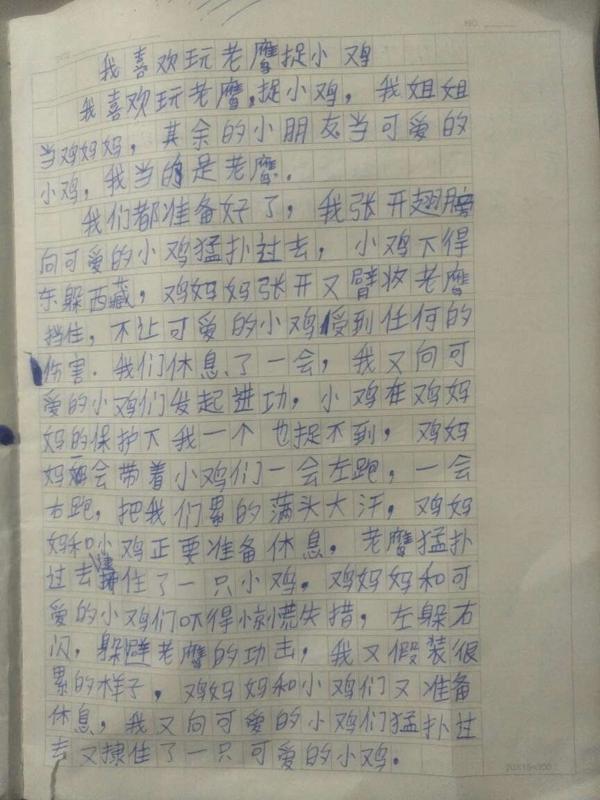 NO.
我喜欢玩老鹰捉小鸡
我喜欢玩老鹰,捉小鸡，我姐姐
当鸡妈妈，其余的小朋友当可爱的
小鸡，我当的是老鹰.
我们都准备好了，我张开翅膀
向可爱的小鸡猛扑过去，小鸡下得
东躲西藏，鸡妈妈张开又臂将老鹰
挡住，不让可爱的小鸡受到任何的
伤害.我们休息了一会，我又向可
爱的小鸡们发起进功，小鸡在鸡妈
妈的保护下我一个也捉不到，鸡妈
妈会带着小鸡们一会左跑，一会
右跑，把我们累的满头大汗，鸡妈
妈和小鸡正要准备休息，老鹰猛扑
过去捷住了一只小鸡.鸡妈妈和可
爱的小鸡们吓得惊慌失措，左躲右
闪，躲避老鹰的功击，我又假装很
累的样子，鸡妈妈和小鸡们又准备
休息，我又向可爱的小鸡们猛扑过
去又捷住了一只可爱的小鸡。